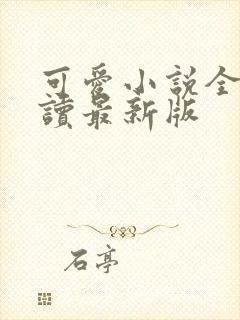 可愛小說全
讀最新版
石亭